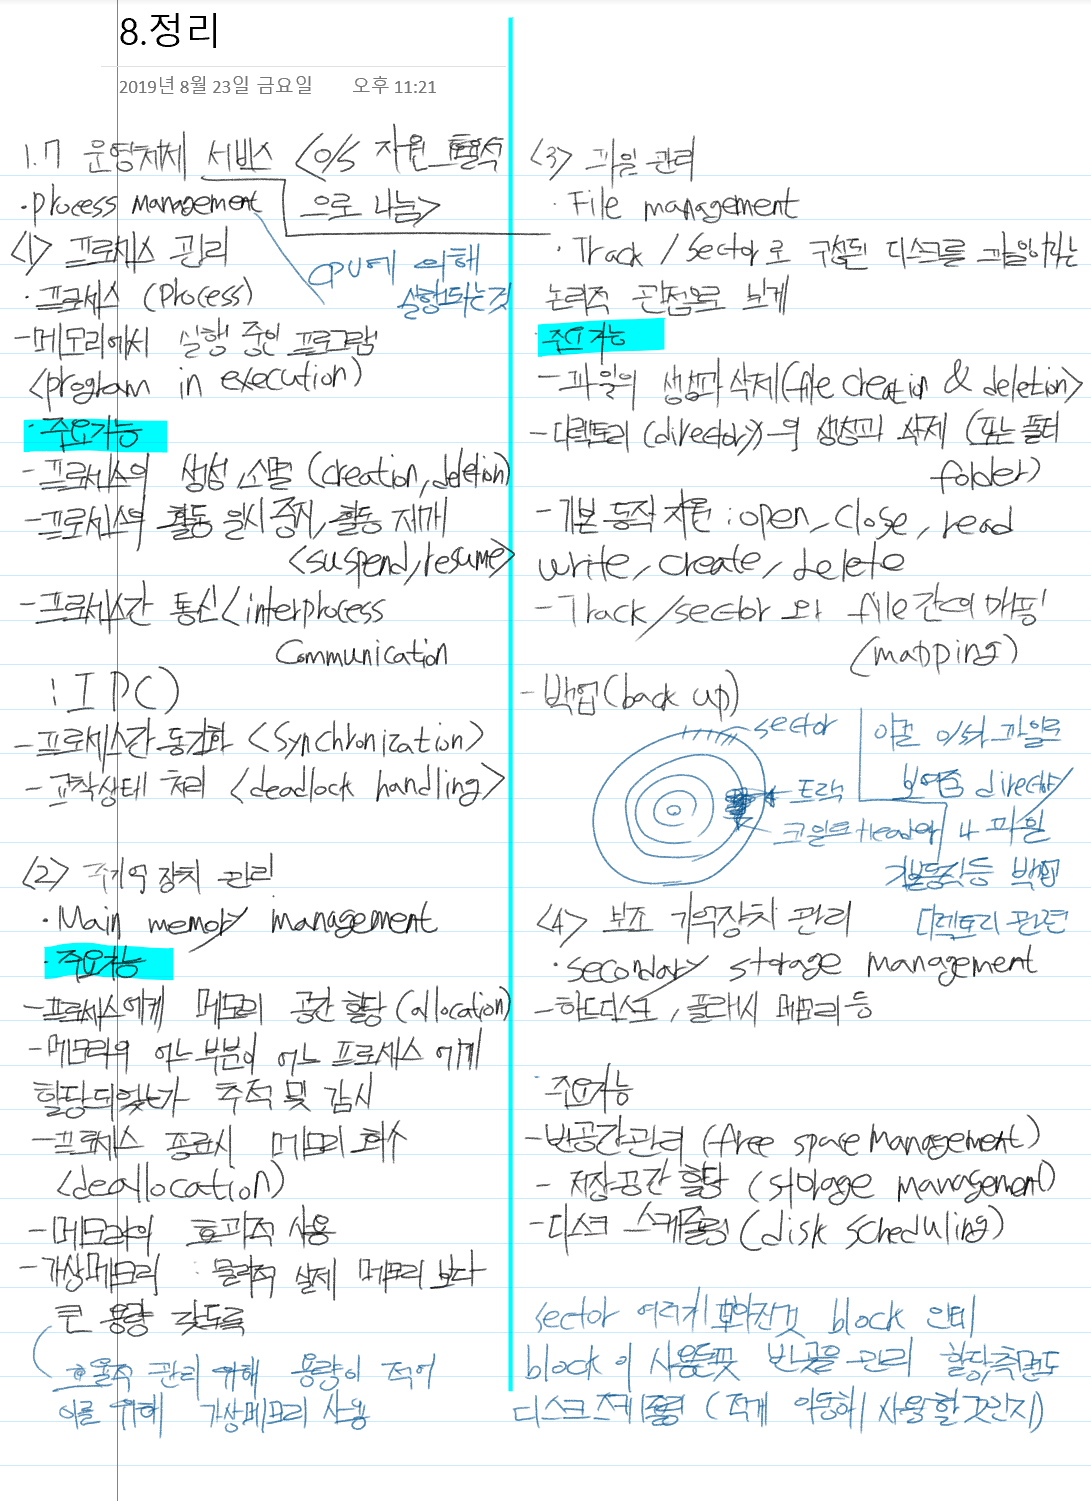 8.정리
2019년 8월 23일 금요일 오후 11:21
1.7 운영체제 서비스 <O/S 자원 효율적
으로 나눔>
· Process Management
<1> 프로세스 관리
CPU에 의해
실행되는것
· 프로세스 (Process)
- 메모리에서 실행 중인 프로그램
<program in execution)
· 주요기능
- 프로세스의 생성, 소멸 (creation, deletion)
- 프로세스의 활동 일시중지, 활동 재개
<suspend, resume>
- 프로세스간 통신 <interprocess
Communication
: IPC)
- 프로세스간 동기화 <Synchronization>
- 교착상태 처리 <deadlock handling>
<2> 주기억 장치 관리
· Main memory management
· 주요기능
- 프로세스에게 메모리 공간 할당 (allocation)
- 메모리의 어느 부분이 어느 프로세스 에게
할당되었는가 추적 및 감시
- 프로세스 종료시 메모리 회수
<deallocation)
- 메모리의 효과적 사용
- 가상메모리 : 물리적 실제 메모리 보다
큰 용량 갖도록
효율적 관리 위해 용량이 적어
이를 위해 가상메모리 사용
<3> 파일 관리
· File management
· Track / Sector로 구성된 디스크를 파일이라는
논리적 관점으로 보게
주요기능
- 파일의 생성과 삭제 (file creation & deletion>
- 디렉토리 (directory)의 생성과 삭제 (또는 폴더
folder)
- 기본 동작 지원 : open, close, read
write, create, delete
- Track/sector 와 file 간의 매핑
(mapping)
- 백업 (back up)
sector
트랙
이걸 O/S가 파일로
보여줌 directory
나 파일
기본동작등 백업
디렉토리 관련
<4> 보조 기억장치 관리
· secondary storage management
- 하드디스크, 플래시 메모리 등
· 주요기능
- 빈공간 관리 (free space management)
- 저장공간 할당 (storage management)
- 디스크 스케줄링 (disk scheduling)
sector 여러개 모아진것 block 인데
block 이 사용듯 빈곳을 관리 할당측면도
디스크스케줄링 (적게 이동해 사용할것인지)